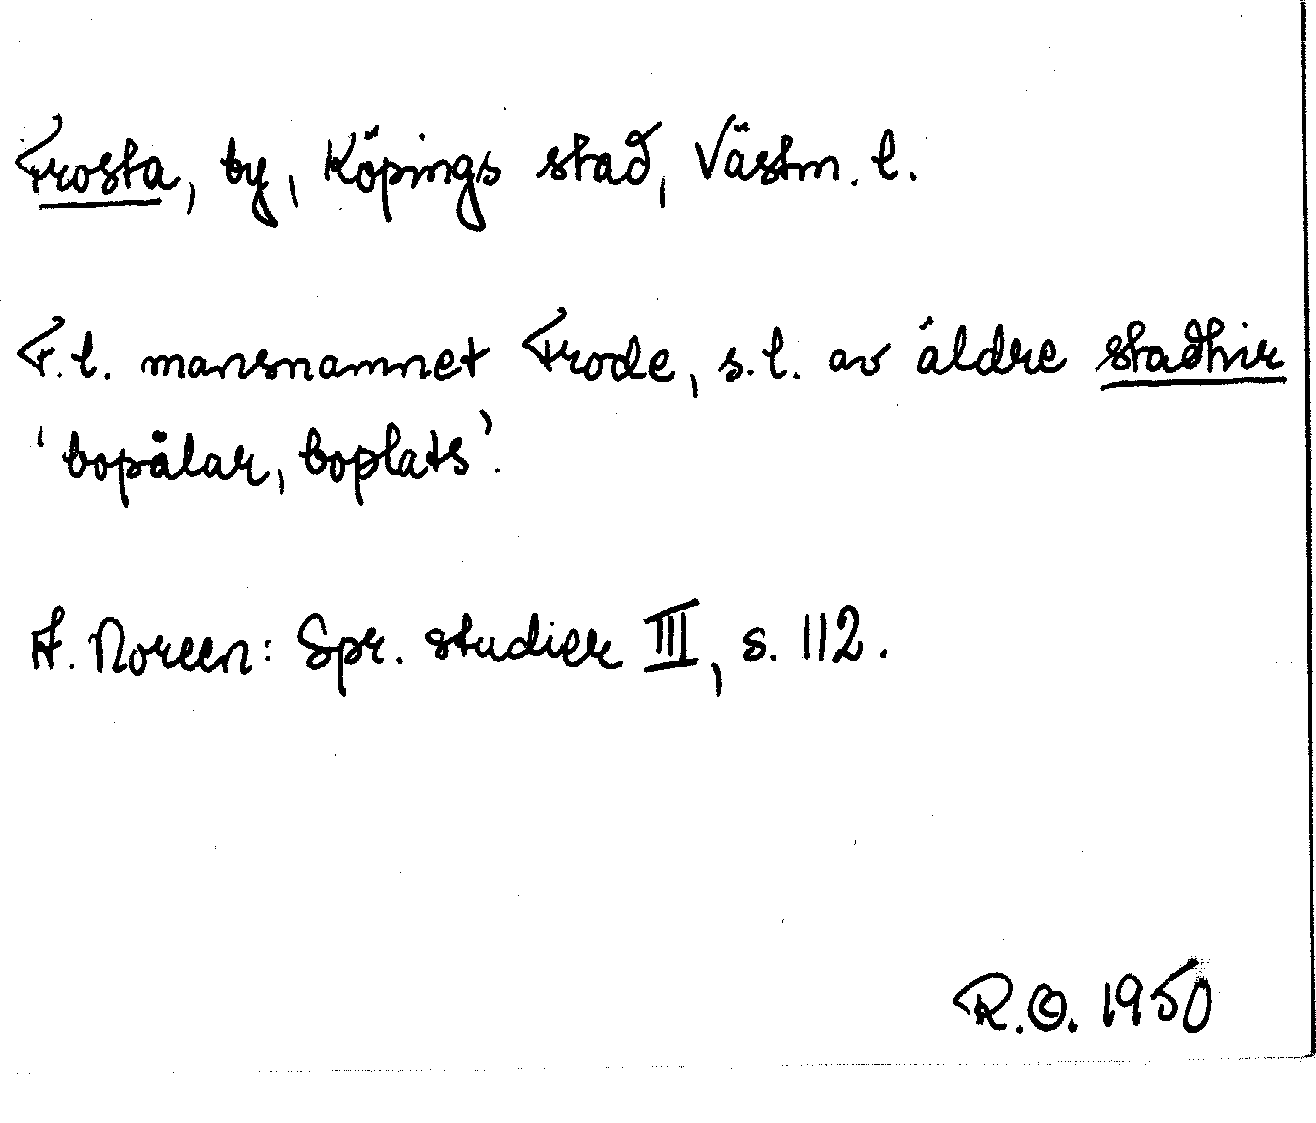 Frosta, by, Köpings stad, Västm. l.
F.l. mansnamnet Frode, s.l. av äldre stadhir
'bopålar, boplats'.
A. Noreen: Spr. studier III, s. 112.
R.O. 1950